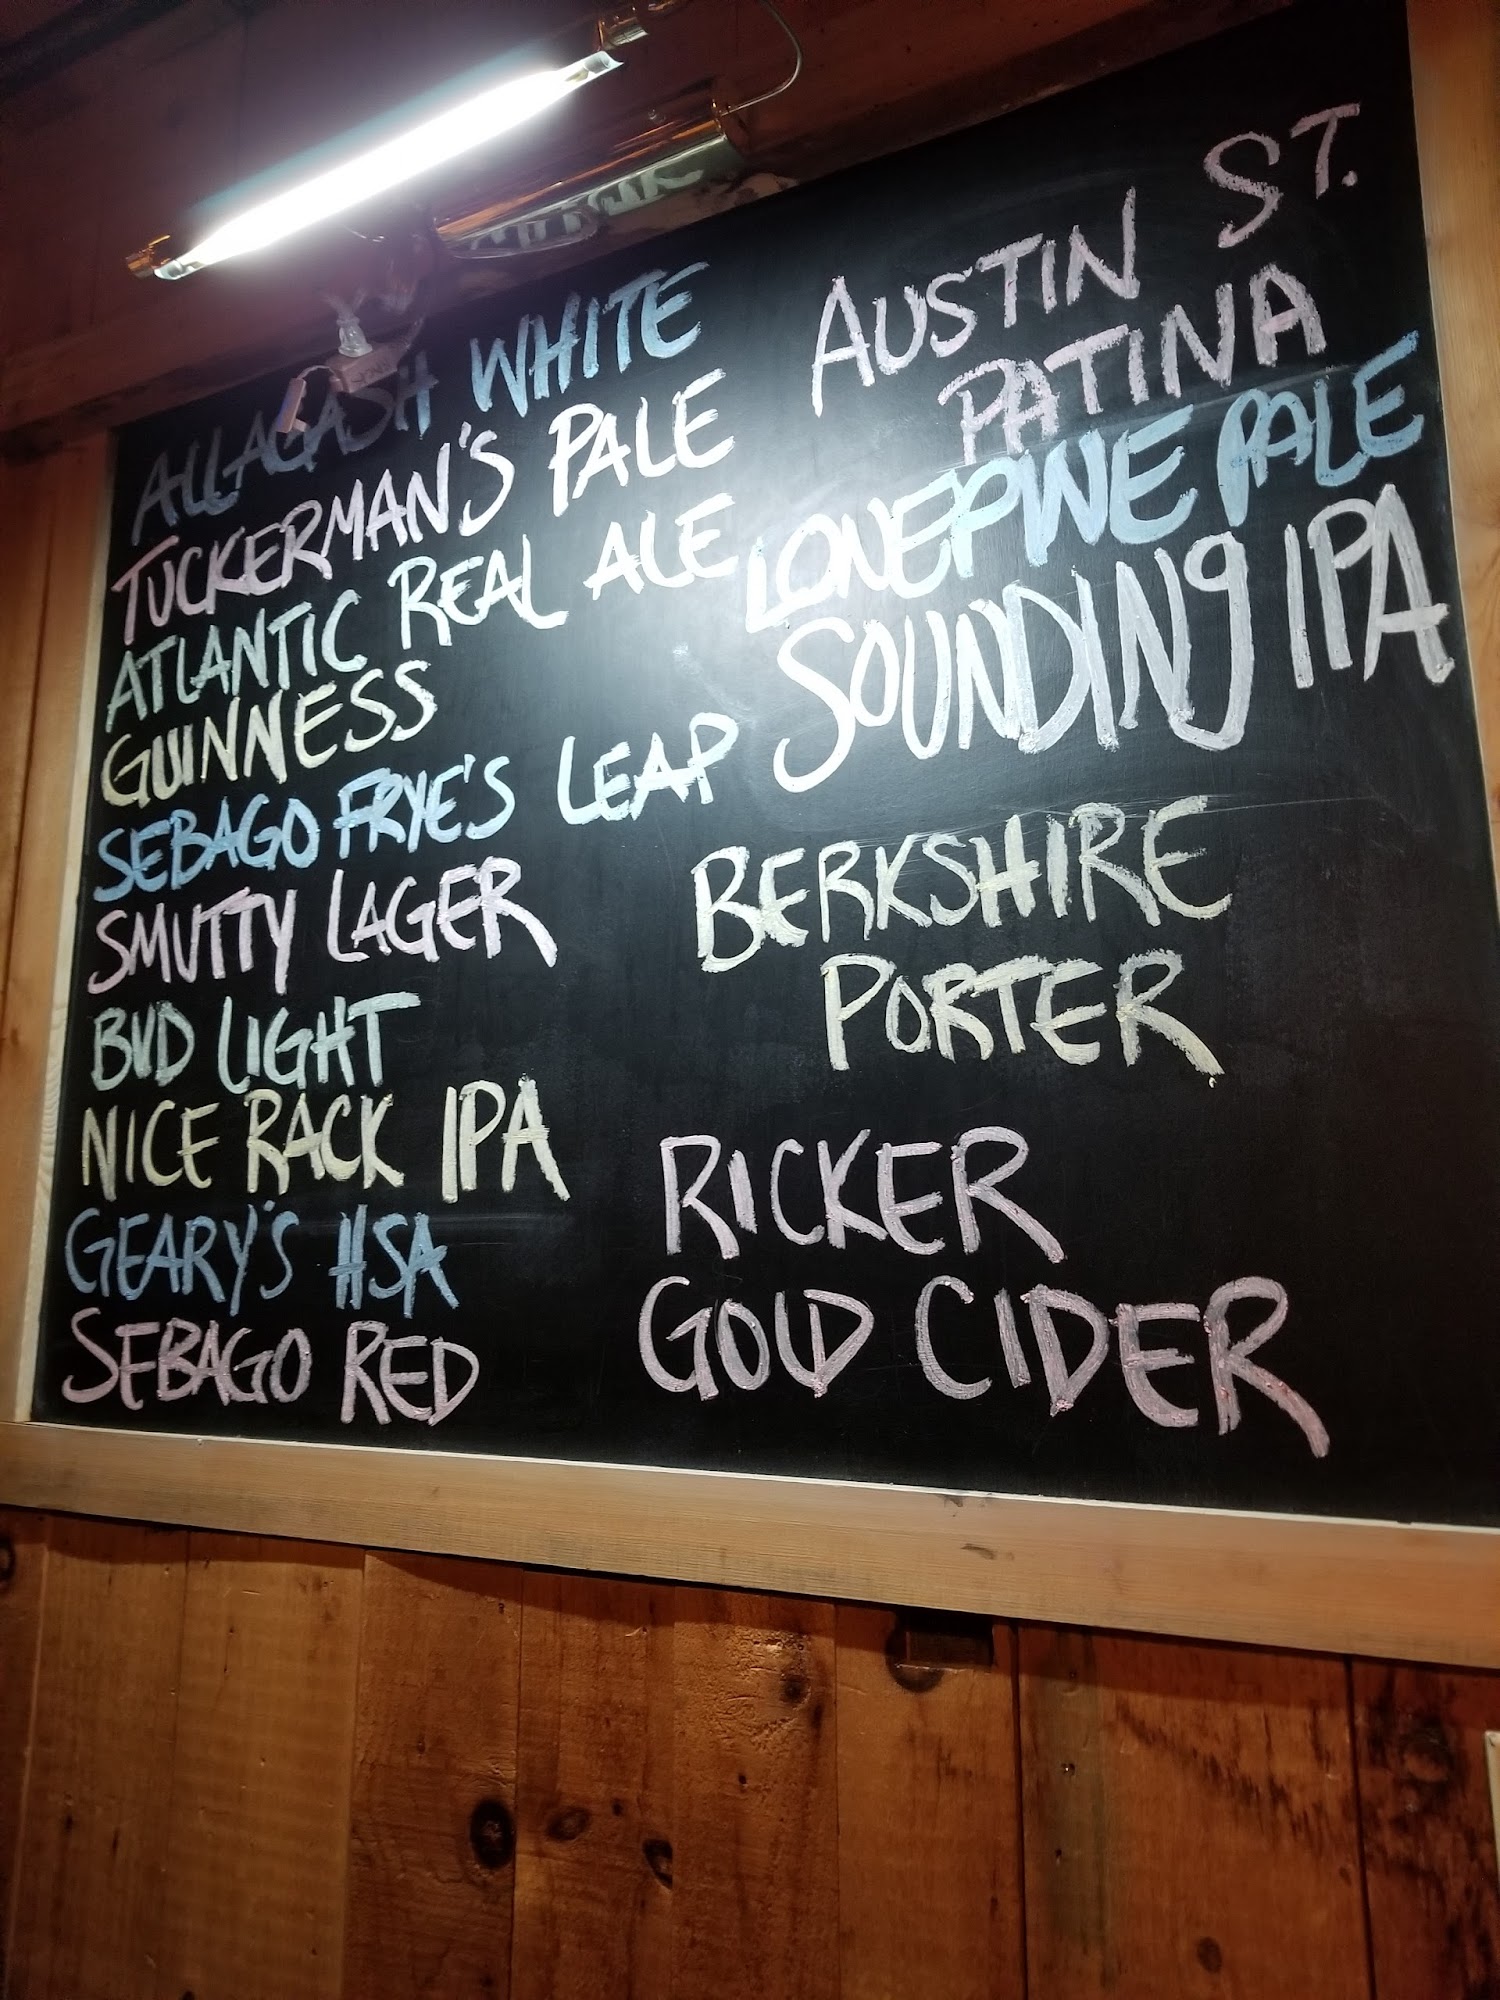 ALLAGASH WHITE
TUCKERMAN'S PALE
ATLANTIC REAL ALE
GUINNESS
SEBAGO FRYE'S LEAP
SMUTTY LAGER
BUD LIGHT
NICE RACK IPA
GEARY'S HSA
SEBAGO RED
AUSTIN ST.
PATINA
LONEPINE PALE
SOUNDINg IPA
BERKSHIRE
PORTER
RICKER
GOLD CIDER